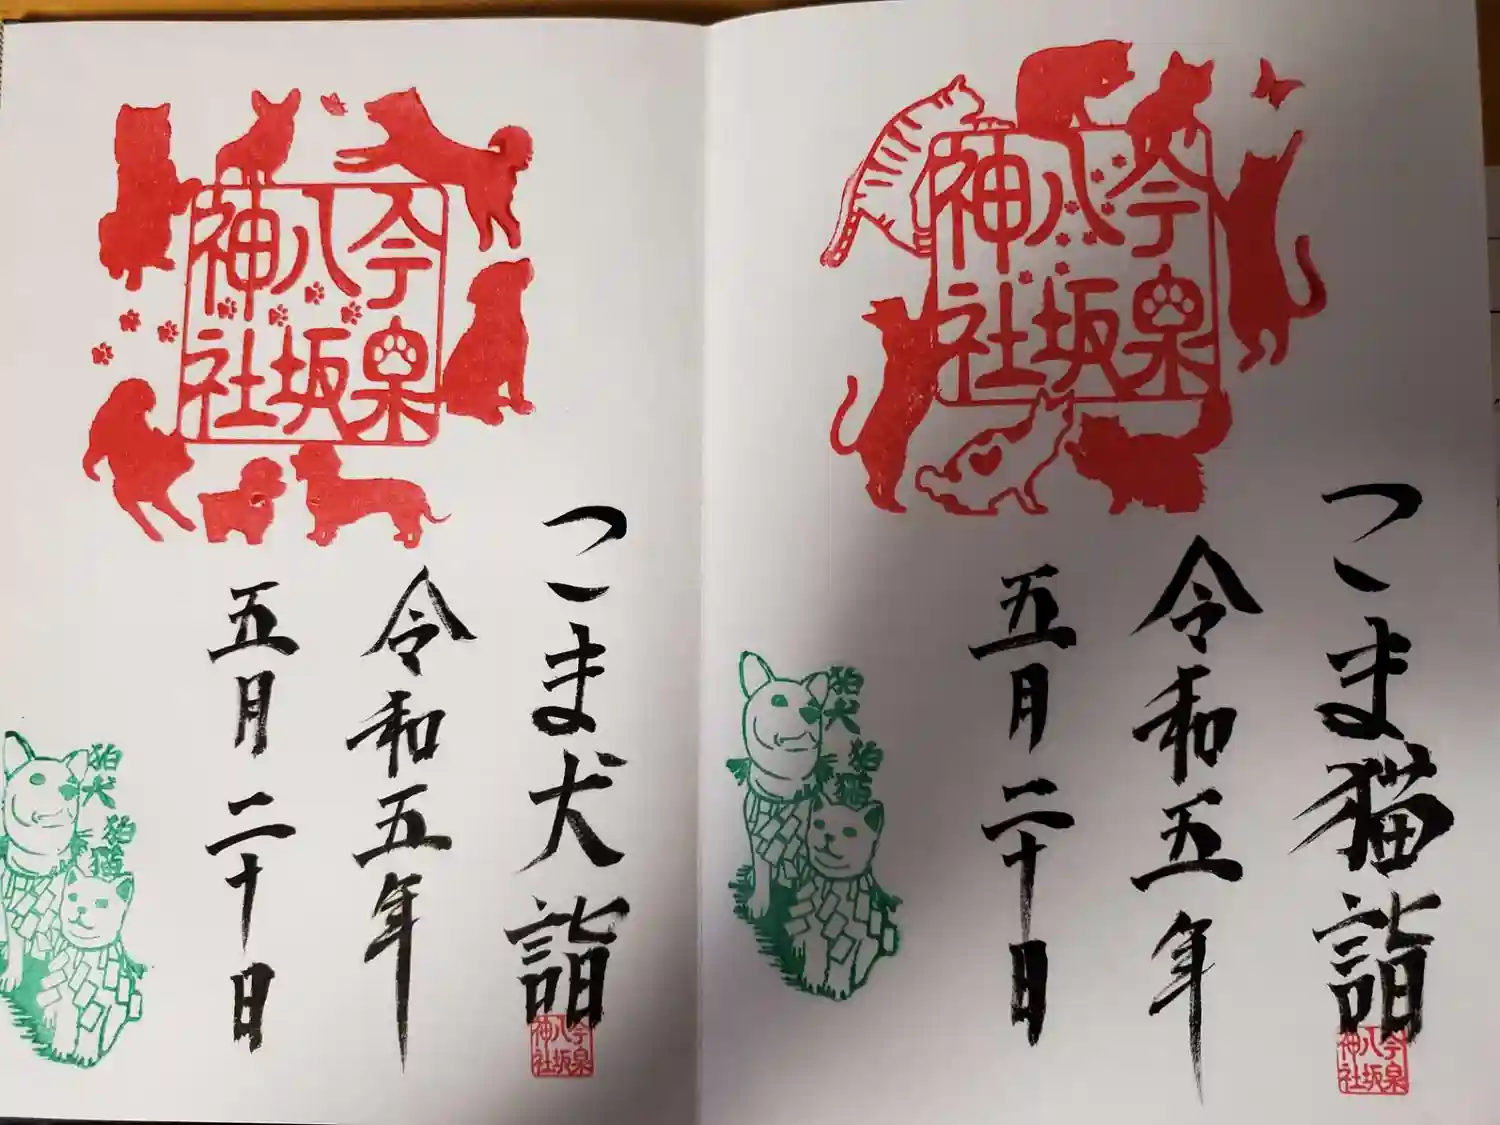 今泉
八坂
神社
こま猫詣
今泉
八坂
神社
令和五年
五月二十日
狛犬
狛猫
今泉
八坂
神社
こま犬詣
今泉
八坂
神社
令和五年
五月二十日
狛犬
狛猫